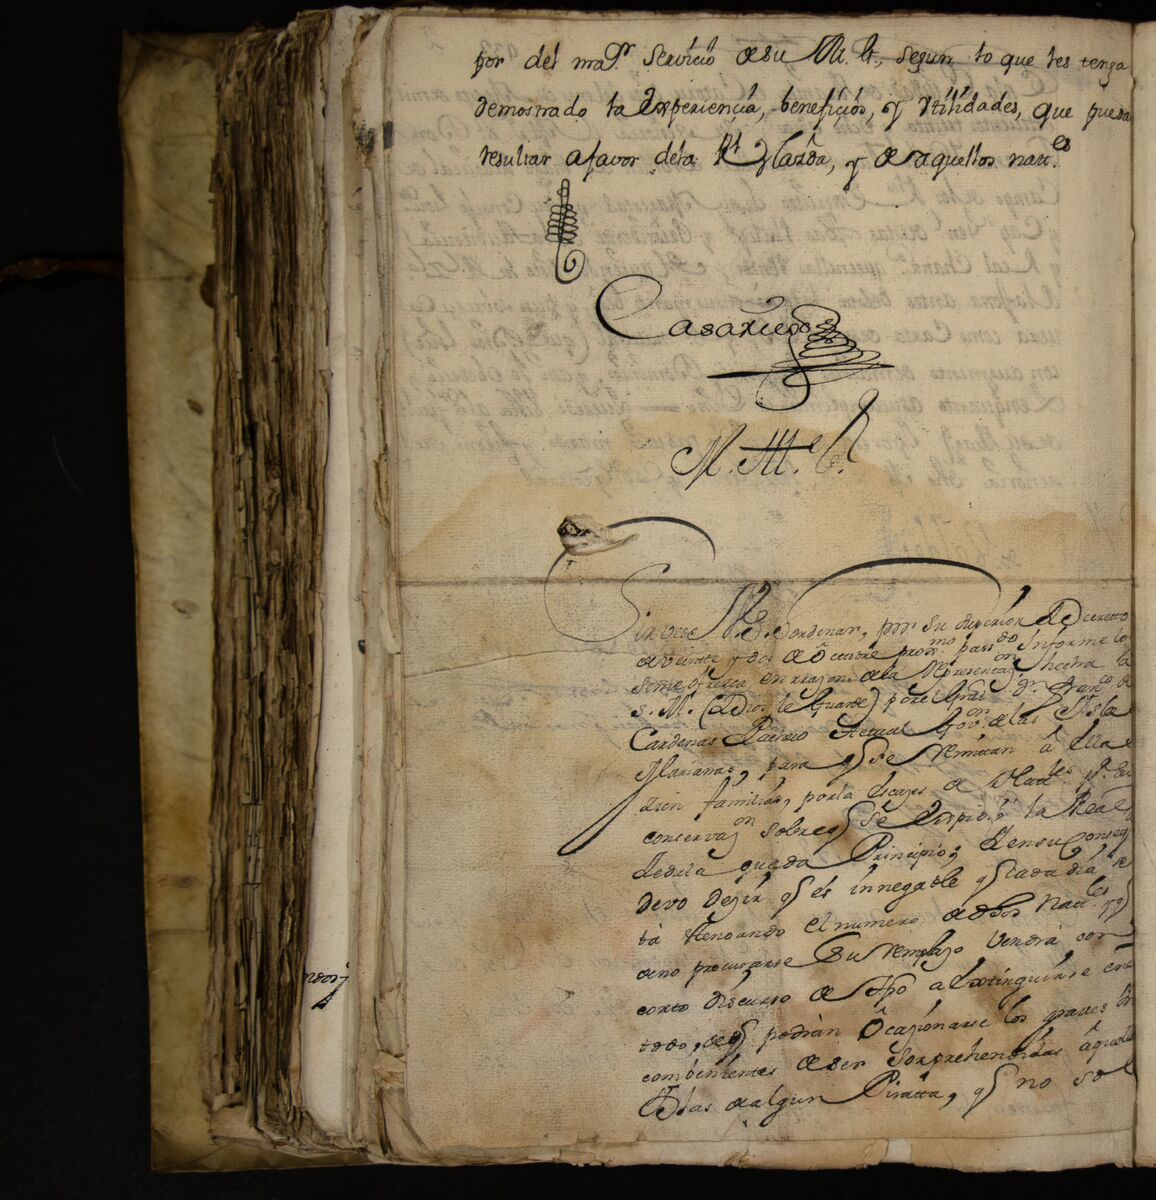 por del maʳ. Servicio de su M. lt., segun lo que les tenga
demostrado la Experiencia, beneficios, y Vtilidades, que pueda
resultar afavor dela Rˡ Hazᵈᵃ, y de aquellos natˡᵉˢ
Casariego
M. Ill.ᵉ S.
Sirvese V. S. ordenar, por su Superior Decretto
de veintte y dos de Octubre proxᵐᵒ passᵈᵒ Informe lo
seme ofresca en razon de la Representazᵒⁿ hecha
S. M. (que Dios le Guarde) por el Gral Dⁿ Franᶜᵒ de
Cardenas Pacheco Actual Govᵒʳ delas Isla
Marianas, para q̃ se remitan â ella
dien familias, por la escases de Natˡᵉˢ
conservazᵒⁿ sobre q̃ se expidió la Real
Zedula que da Principio; Y en su conseq
devo dezir, q̃ és innegable q̃ cada dia se
tà menorando el numero de dhos Natˡᵉˢ y q̃
de no procurarse su remplazo vendrà con
corto discurso de tpo a Extinguirse en
todo, de q̃ podràn Ocazionarse los graves In
combenientes de ser sorprehendidas aquella
Islas de algun Piratta, q̃ no sol